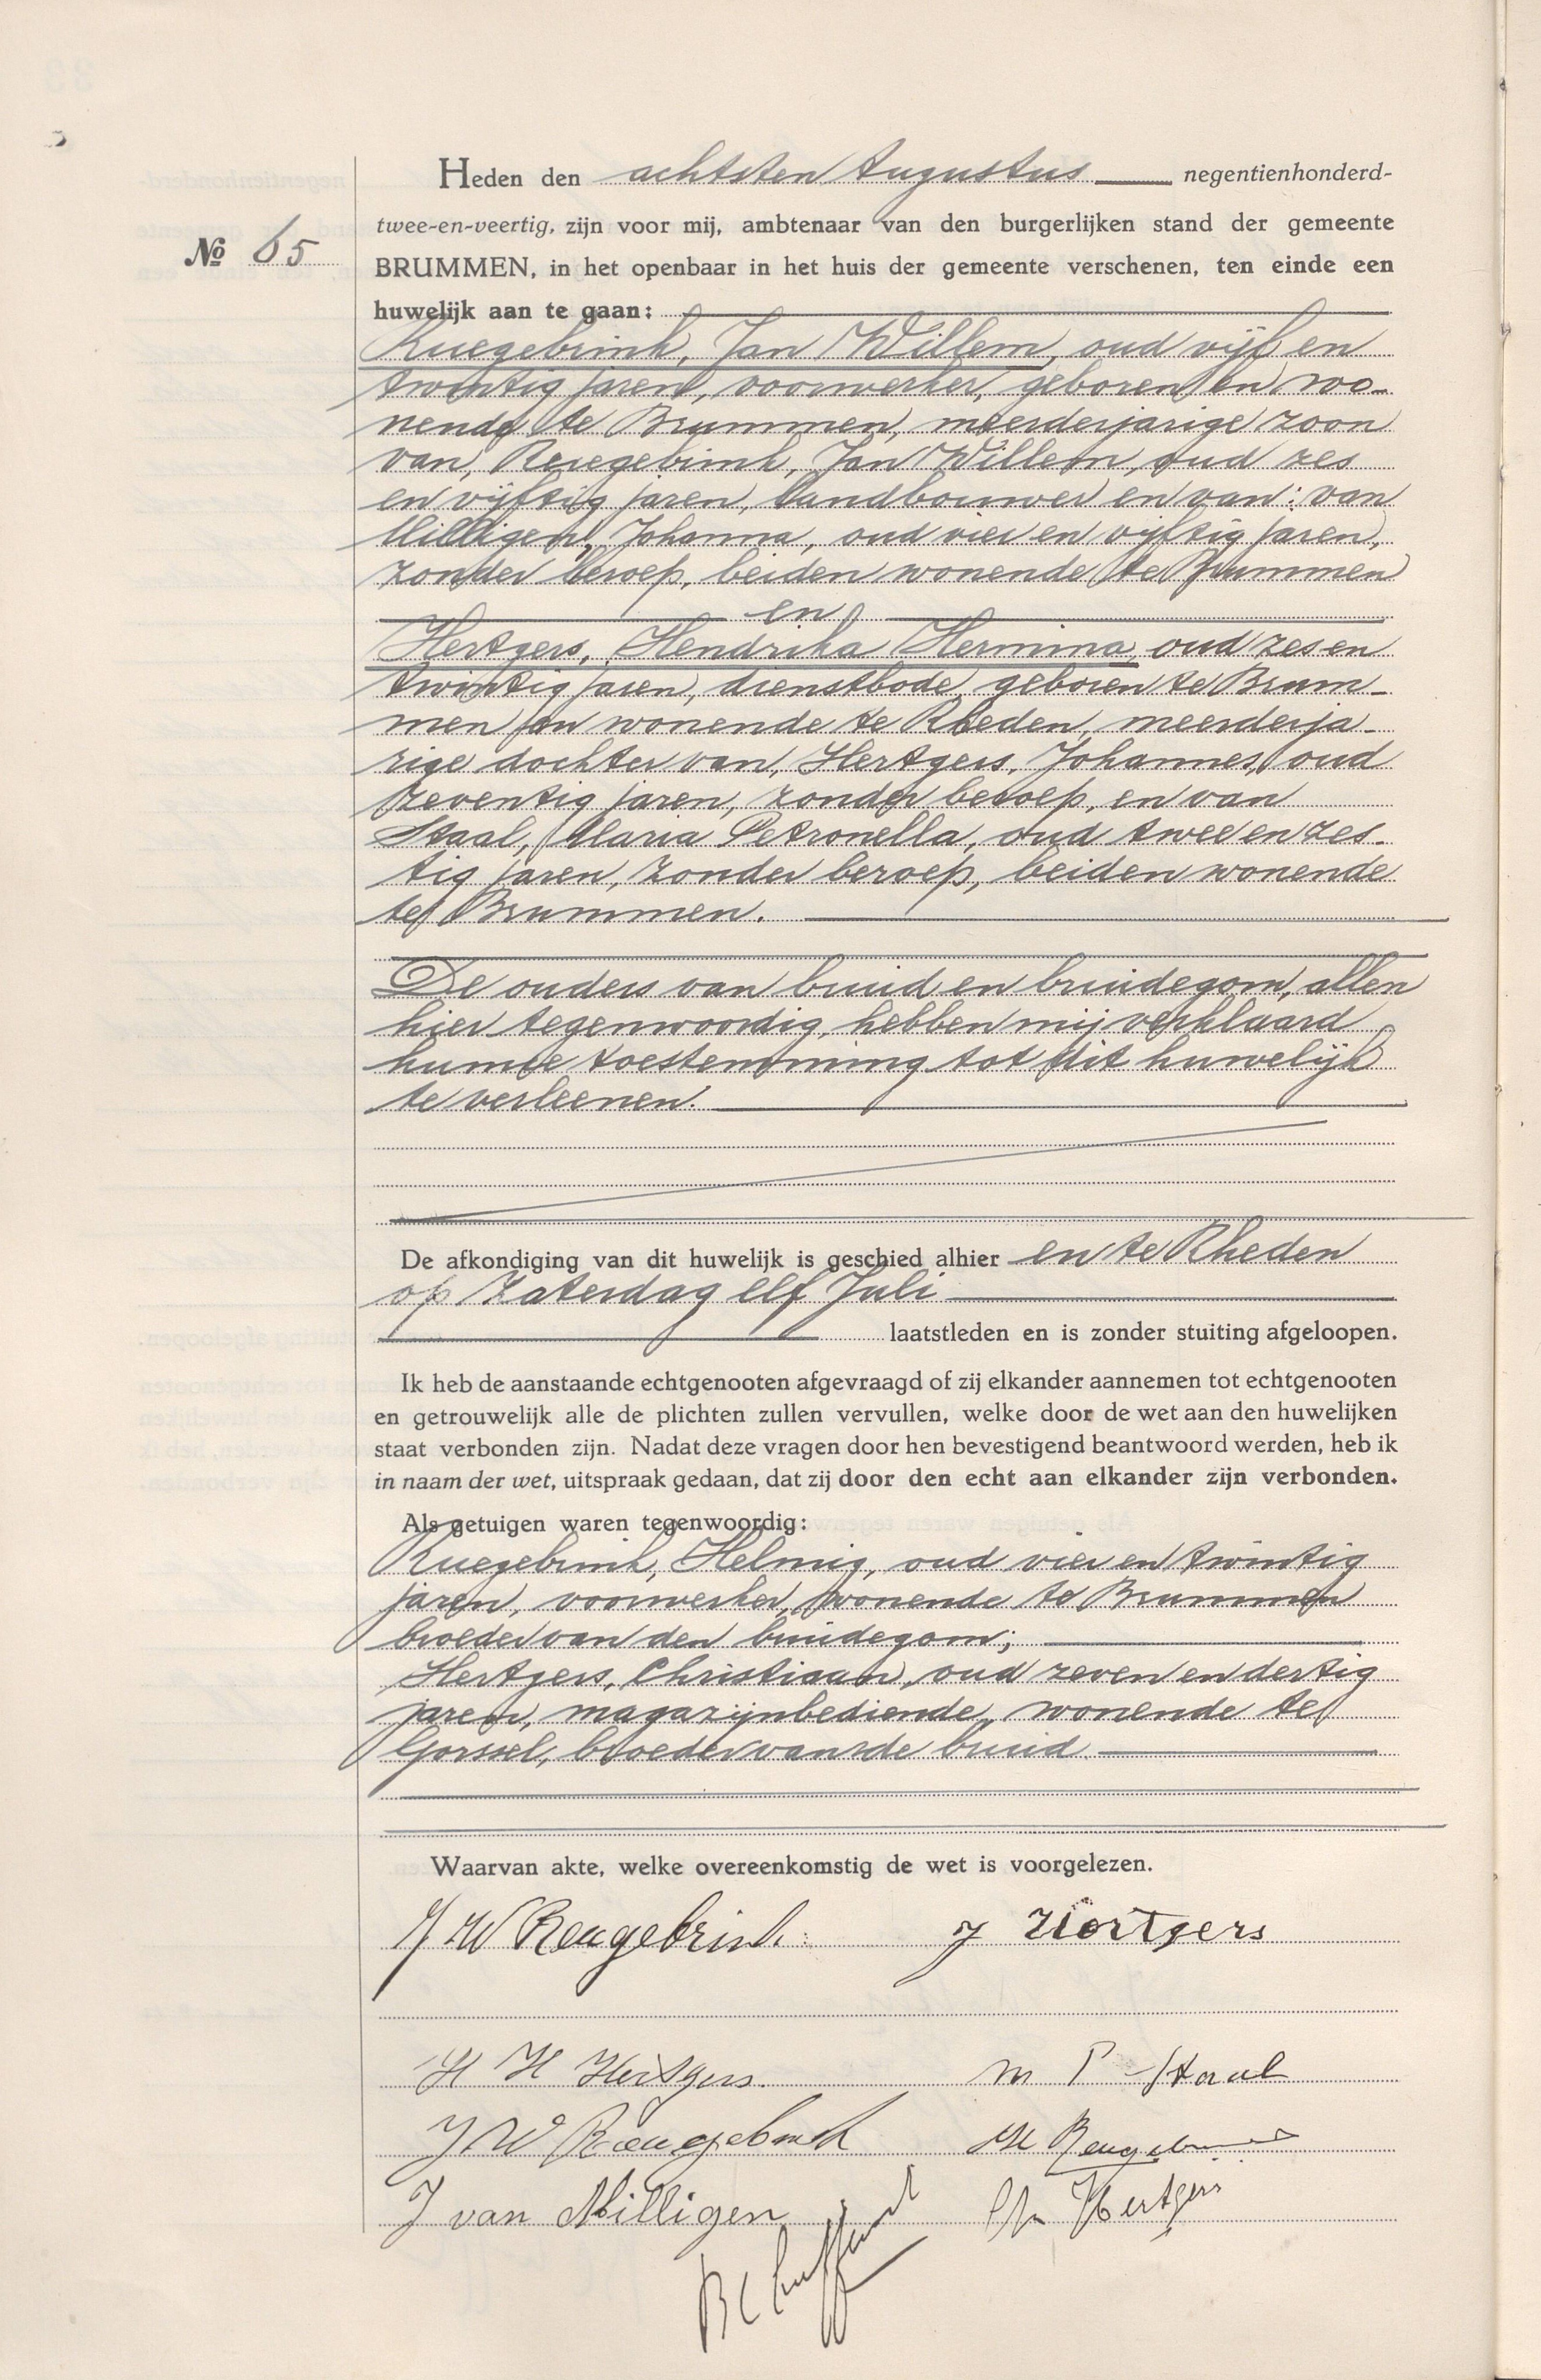 Heden den achtsten Augustus negentienhonderd-
twee-en-veertig, zijn voor mij, ambtenaar van den burgerlijken stand der gemeente
№ 65
BRUMMEN, in het openbaar in het huis der gemeente verschenen, ten einde een
huwelijk aan te gaan:
Ruegebrink, Jan Willem, oud vijf en
twintig jaren, voorwerker, geboren en wo-
nende te Brummen, meerderjarige zoon
van, Reuegebrink, Jan Willem, oud zes
en vijftig jaren, landbouwer en van: van
Milligen, Johanna, oud vier en vijftig jaren,
zonder beroep, beiden wonende te Brummen
en
Hertgers, Hendrika Hermina, oud zes en
twintig jaren, dienstbode, geboren te Brum-
men en wonende te Rheden, meerderja-
rige dochter van, Hertgers, Johannes, oud
zeventig jaren, zonder beroep, en van
Staal, Maria Petronella, oud twee en zes-
tig jaren, zonder beroep, beiden wonende
te Brummen.
De ouders van bruid en bruidegom, allen
hier tegenwoordig, hebben mij verklaard
hunne toestemming tot dit huwelijk
te verleenen.
De afkondiging van dit huwelijk is geschied alhier en te Rheden
op Zaterdag elf Juli
laatstleden en is zonder stuiting afgeloopen.
Ik heb de aanstaande echtgenooten afgevraagd of zij elkander aannemen tot echtgenooten
en getrouwelijk alle de plichten zullen vervullen, welke door de wet aan den huwelijken
staat verbonden zijn. Nadat deze vragen door hen bevestigend beantwoord werden, heb ik
in naam der wet, uitspraak gedaan, dat zij door den echt aan elkander zijn verbonden.
Als getuigen waren tegenwoordig:
Ruegebrink, Helmig, oud vier en twintig
jaren, voorwerker, wonende te Brummen
broeder van den bruidegom;
Hertgers, Christiaan, oud zeven en dertig
jaren, magazijnbediende, wonende te
Gorssel, broeder van de bruid.
Waarvan akte, welke overeenkomstig de wet is voorgelezen.
J W Reugebrink. J Hertgers
H H Hertgers. M P Staal
J W Reugebrink H Reugebrink
J van Milligen Ch Hertgers